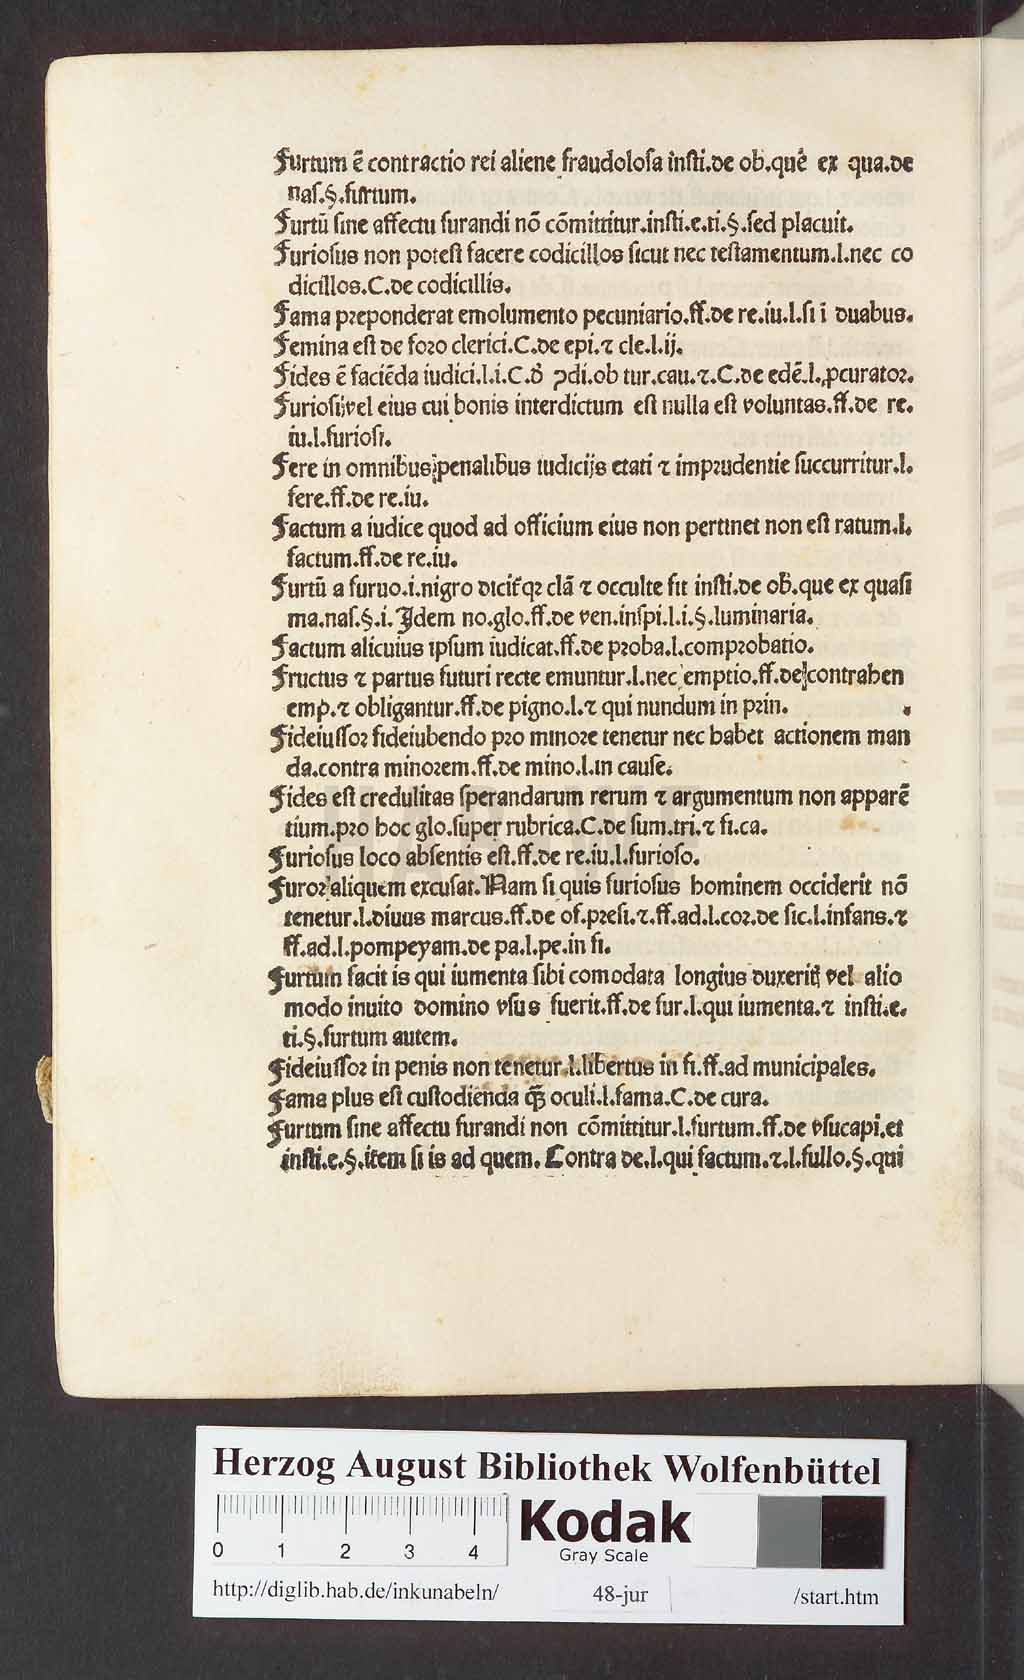 Furtum ē contractio rei aliene fraudolosa insti.de ob.quē ex qua.de
nas.§.furtum.
Furtū sine affectu furandi nō cōmittitur.insti.e.ti.§.sed placuit.
Furiosus non potest facere codicillos sicut nec testamentum.l.nec co
dicillos.C.de codicillis.
Fama preponderat emolumento pecuniario.ff.de re.iu.l.si i duabus.
Femina est de foro clerici.C.de epi.⁊ cle.l.ij.
Fides ē faciēda iudici.l.i.C.ð ꝯdi.ob tur.cau.⁊.C.de edē.l.ꝓcurator.
Furiosi vel eius cui bonis interdictum est nulla est voluntas.ff.de re.
iu.l.furiosi.
Fere in omnibus penalibus iudicijs etati ⁊ imprudentie succurritur.l.
fere.ff.de re.iu.
Factum a iudice quod ad officium eius non pertinet non est ratum.l.
factum.ff.de re.iu.
Furtū a furuo.i.nigro dicit̉ qꝛ clā ⁊ occulte fit insti.de ob.que ex quasi
ma.nas.§.i. Idem no.glo.ff.de ven.inspi.l.i.§.luminaria.
Factum alicuius ipsum iudicat.ff.de proba.l.comprobatio.
Fructus ⁊ partus futuri recte emuntur.l.nec emptio.ff.de contrahen
emp.⁊ obligantur.ff.de pigno.l.⁊ qui nundum in prin.
Fideiussor fideiubendo pro minore tenetur nec habet actionem man
da.contra minorem.ff.de mino.l.in cause.
Fides est credulitas sperandarum rerum ⁊ argumentum non apparē
tium.pro hoc glo.super rubrica.C.de sum.tri.⁊ fi.ca.
Furiosus loco absentis est.ff.de re.iu.l.furioso.
Furor aliquem excusat.Nam si quis furiosus hominem occiderit nō
tenetur.l.diuus marcus.ff.de of.presi.⁊.ff.ad.l.cor.de sic.l.infans.⁊
ff.ad.l.pompeyam.de pa.l.pe.in fi.
Furtum facit is qui iumenta sibi comodata longius duxerit vel alio
modo inuito domino vsus fuerit.ff.de fur.l.qui iumenta.⁊ insti.e.
ti.§.furtum autem.
Fideiussor in penis non tenetur.l.libertus in fi.ff.ad municipales.
Fama plus est custodienda qꝫ oculi.l.fama.C.de cura.
Furtum sine affectu furandi non cōmittitur.l.furtum.ff.de vsucapi.et
insti.e.§.item si is ad quem. Contra de.l.qui factum.⁊.l.fullo.§.qui
HAB WF
Herzog August Bibliothek Wolfenbüttel
0 1 2 3 4
Kodak
Gray Scale
http://diglib.hab.de/inkunabeln/ 48-jur /start.htm